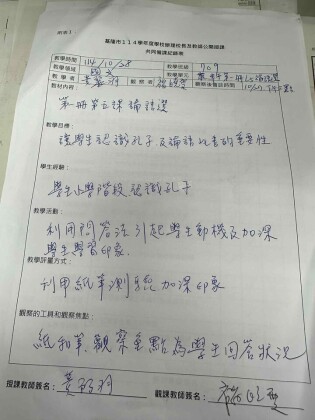 附表1
基隆市114學年度學校辦理校長及教師公開授課
共同備課紀錄表
教學時間 114/10/28 教學班級 709
教學領域 國文 教學單元
教學者 觀察者 觀察後會談時間
教材內容 第一冊第五課 論語選
教學目標：
讓學生認識孔子及論語此書的重要性
學生經驗：
學生小學階段認識孔子
教學活動：
利用問答法引起學生動機及加深
學生學習印象.
教學評量方式：
利用紙筆測驗加深印象
觀察的工具和觀察焦點：
紙和筆.觀察重點為學生回答狀況
授課教師簽名： 觀課教師簽名：